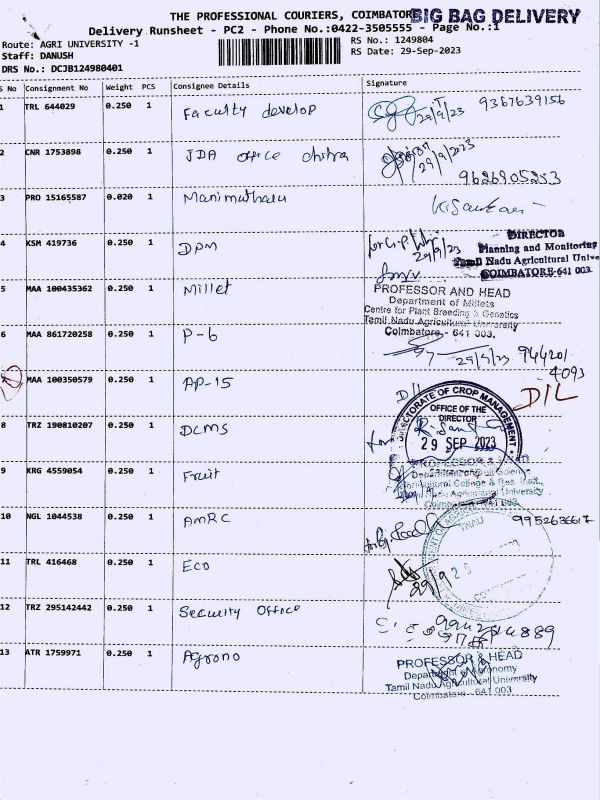 THE PROFESSIONAL COURIERS, COIMBATOR
BIG BAG DELIVERY
Delivery Runsheet - PC2 - Phone No.:0422-3505555 - Page No.:1
Route: AGRI UNIVERSITY -1
RS No.: 1249804
Staff: DANUSH
RS Date: 29-Sep-2023
DRS No.: DCJB124980401
S No Consignment No Weight PCS Consignee Details Signature
1 TRL 644029 0.250 1 Faculty develop 29/9/23 9367639156
2 CNR 1753898 0.250 1 JDA office chitra 29/9/2023
9626905253
3 PRO 15165587 0.020 1 Manimutharu
4 KSM 419736 0.250 1 DPM 29/9/23
DIRECTOR
Planning and Monitoring
Tamil Nadu Agricultural Unive
COIMBATORE-641 003.
5 MAA 100435362 0.250 1 Millet
PROFESSOR AND HEAD
Department of Millets
Centre for Plant Breeding & Genetics
Tamil Nadu Agricultural University
Coimbatore - 641 003.
6 MAA 861720258 0.250 1 P-6 29/9/23 944201
4093
7 MAA 100350579 0.250 1 AP-15 D/L
DIRECTORATE OF CROP MANAGEMENT
OFFICE OF THE
DIRECTOR
29 SEP 2023
8 TRZ 190810207 0.250 1 DCMS
9 KRG 4559054 0.250 1 Fruit
PROFESSOR &
Tamil Nadu Agricultural University
Coimbatore
10 NGL 1044538 0.250 1 AMRC 9952636617
TNAU
11 TRL 416468 0.250 1 Eco 29/9
12 TRZ 295142442 0.250 1 Security Office
13 ATR 1759971 0.250 1 Agrono
PROFESSOR & HEAD
Department of Agronomy
Tamil Nadu Agricultural University
Coimbatore - 641 003